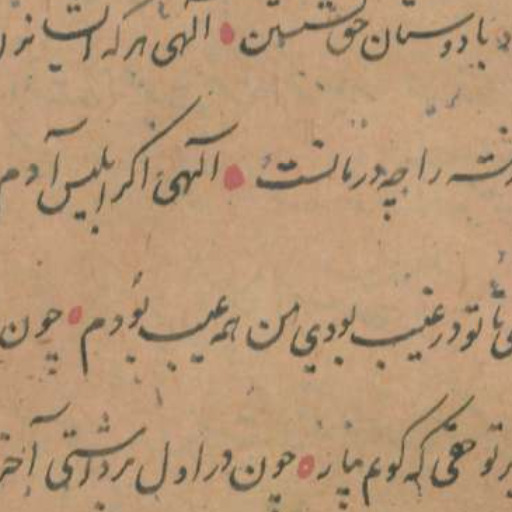 با دوستان حق نشستن ● الهی هر که
را چه درمانست ● الهی اگر ابلیس آدم
تا تو در غیب بودی من همه عیب بودم ● چون
تو حقی که گویم بیار ● چون در اول برداشتی